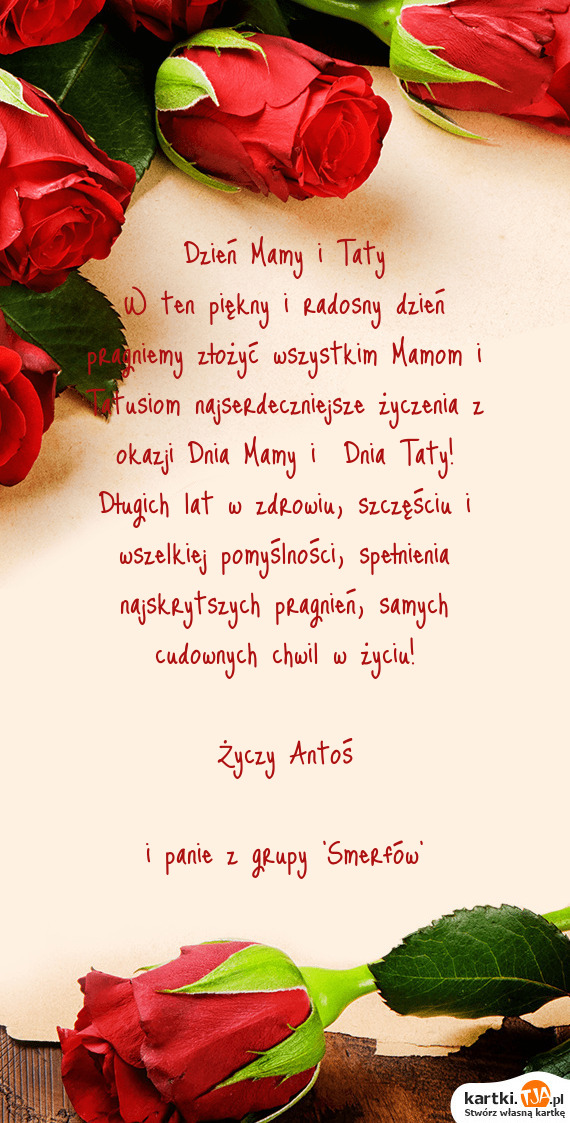 Dzień Mamy i Taty
W ten piękny i radosny dzień
pragniemy złożyć wszystkim Mamom i
Tatusiom najserdeczniejsze życzenia z
okazji Dnia Mamy i Dnia Taty!
Długich lat w zdrowiu, szczęściu i
wszelkiej pomyślności, spełnienia
najskrytszych pragnień, samych
cudownych chwil w życiu!
Życzy Antoś
i panie z grupy 'Smerfów'
kartki.TJA.pl
Stwórz własną kartkę